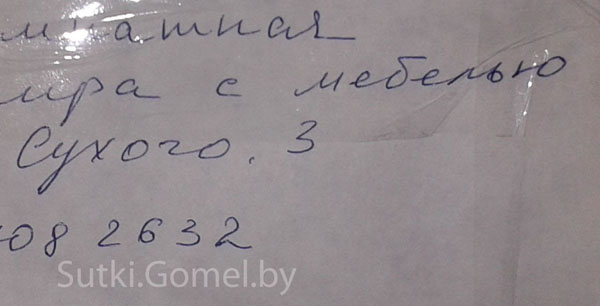 мнатная
ира с мебелью
Сухого. 3
08 2632
Sutki.Gomel.by